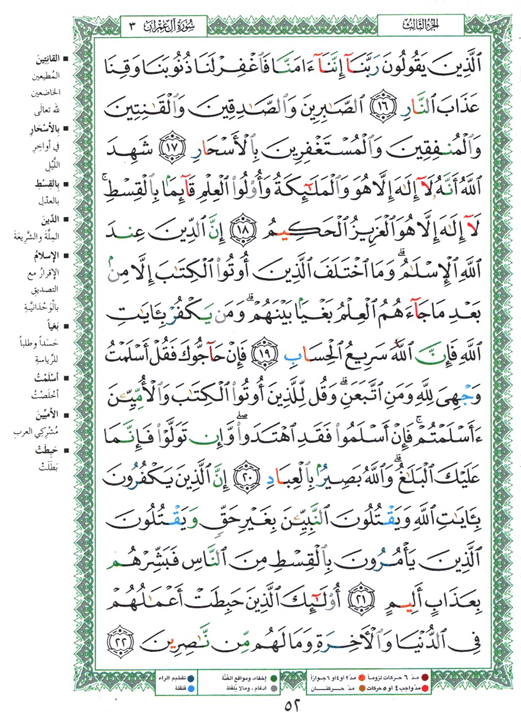 الجزء الثالث
سورة آل عمران ٣
ٱلَّذِينَ يَقُولُونَ رَبَّنَآ إِنَّنَآ ءَامَنَّا فَٱغْفِرْ لَنَا ذُنُوبَنَا وَقِنَا
عَذَابَ ٱلنَّارِ ١٦ ٱلصَّٰبِرِينَ وَٱلصَّٰدِقِينَ وَٱلْقَٰنِتِينَ
وَٱلْمُنفِقِينَ وَٱلْمُسْتَغْفِرِينَ بِٱلْأَسْحَارِ ١٧ شَهِدَ
ٱللَّهُ أَنَّهُۥ لَآ إِلَٰهَ إِلَّا هُوَ وَٱلْمَلَٰٓئِكَةُ وَأُو۟لُوا۟ ٱلْعِلْمِ قَآئِمًۢا بِٱلْقِسْطِ ۚ
لَآ إِلَٰهَ إِلَّا هُوَ ٱلْعَزِيزُ ٱلْحَكِيمُ ١٨ إِنَّ ٱلدِّينَ عِندَ
ٱللَّهِ ٱلْإِسْلَٰمُ ۗ وَمَا ٱخْتَلَفَ ٱلَّذِينَ أُوتُوا۟ ٱلْكِتَٰبَ إِلَّا مِنۢ
بَعْدِ مَا جَآءَهُمُ ٱلْعِلْمُ بَغْيًۢا بَيْنَهُمْ ۗ وَمَن يَكْفُرْ بِـَٔايَٰتِ
ٱللَّهِ فَإِنَّ ٱللَّهَ سَرِيعُ ٱلْحِسَابِ ١٩ فَإِنْ حَآجُّوكَ فَقُلْ أَسْلَمْتُ
وَجْهِىَ لِلَّهِ وَمَنِ ٱتَّبَعَنِ ۗ وَقُل لِّلَّذِينَ أُوتُوا۟ ٱلْكِتَٰبَ وَٱلْأُمِّيِّـۧنَ
ءَأَسْلَمْتُمْ ۚ فَإِنْ أَسْلَمُوا۟ فَقَدِ ٱهْتَدَوا۟ ۖ وَّإِن تَوَلَّوْا۟ فَإِنَّمَا
عَلَيْكَ ٱلْبَلَٰغُ ۗ وَٱللَّهُ بَصِيرٌۢ بِٱلْعِبَادِ ٢٠ إِنَّ ٱلَّذِينَ يَكْفُرُونَ
بِـَٔايَٰتِ ٱللَّهِ وَيَقْتُلُونَ ٱلنَّبِيِّـۧنَ بِغَيْرِ حَقٍّ وَيَقْتُلُونَ
ٱلَّذِينَ يَأْمُرُونَ بِٱلْقِسْطِ مِنَ ٱلنَّاسِ فَبَشِّرْهُم
بِعَذَابٍ أَلِيمٍ ٢١ أُو۟لَٰٓئِكَ ٱلَّذِينَ حَبِطَتْ أَعْمَٰلُهُمْ
فِى ٱلدُّنْيَا وَٱلْـَٔاخِرَةِ وَمَا لَهُم مِّن نَّٰصِرِينَ ٢٢
القانتين
المطيعين
الخاضعين
لله تعالى
بالأسحار
في أواخر
الليل
بالقسط
بالعدل
الدين
الملة والشريعة
الإسلام
الإقرار مع
التصديق
بالوحدانية
بغيا
حسدا وطلبا
للرياسة
أسلمت
أخلصت
الأميين
مشركي العرب
حبطت
بطلت
مد ٦ حركات لزوما
مد ٢ أو ٤ أو ٦ جوازا
مد واجب ٤ أو ٥ حركات
مد حركتان
إخفاء، ومواقع الغنة
ادغام، وما لا يلفظ
تفخيم الراء
قلقلة
٥٢